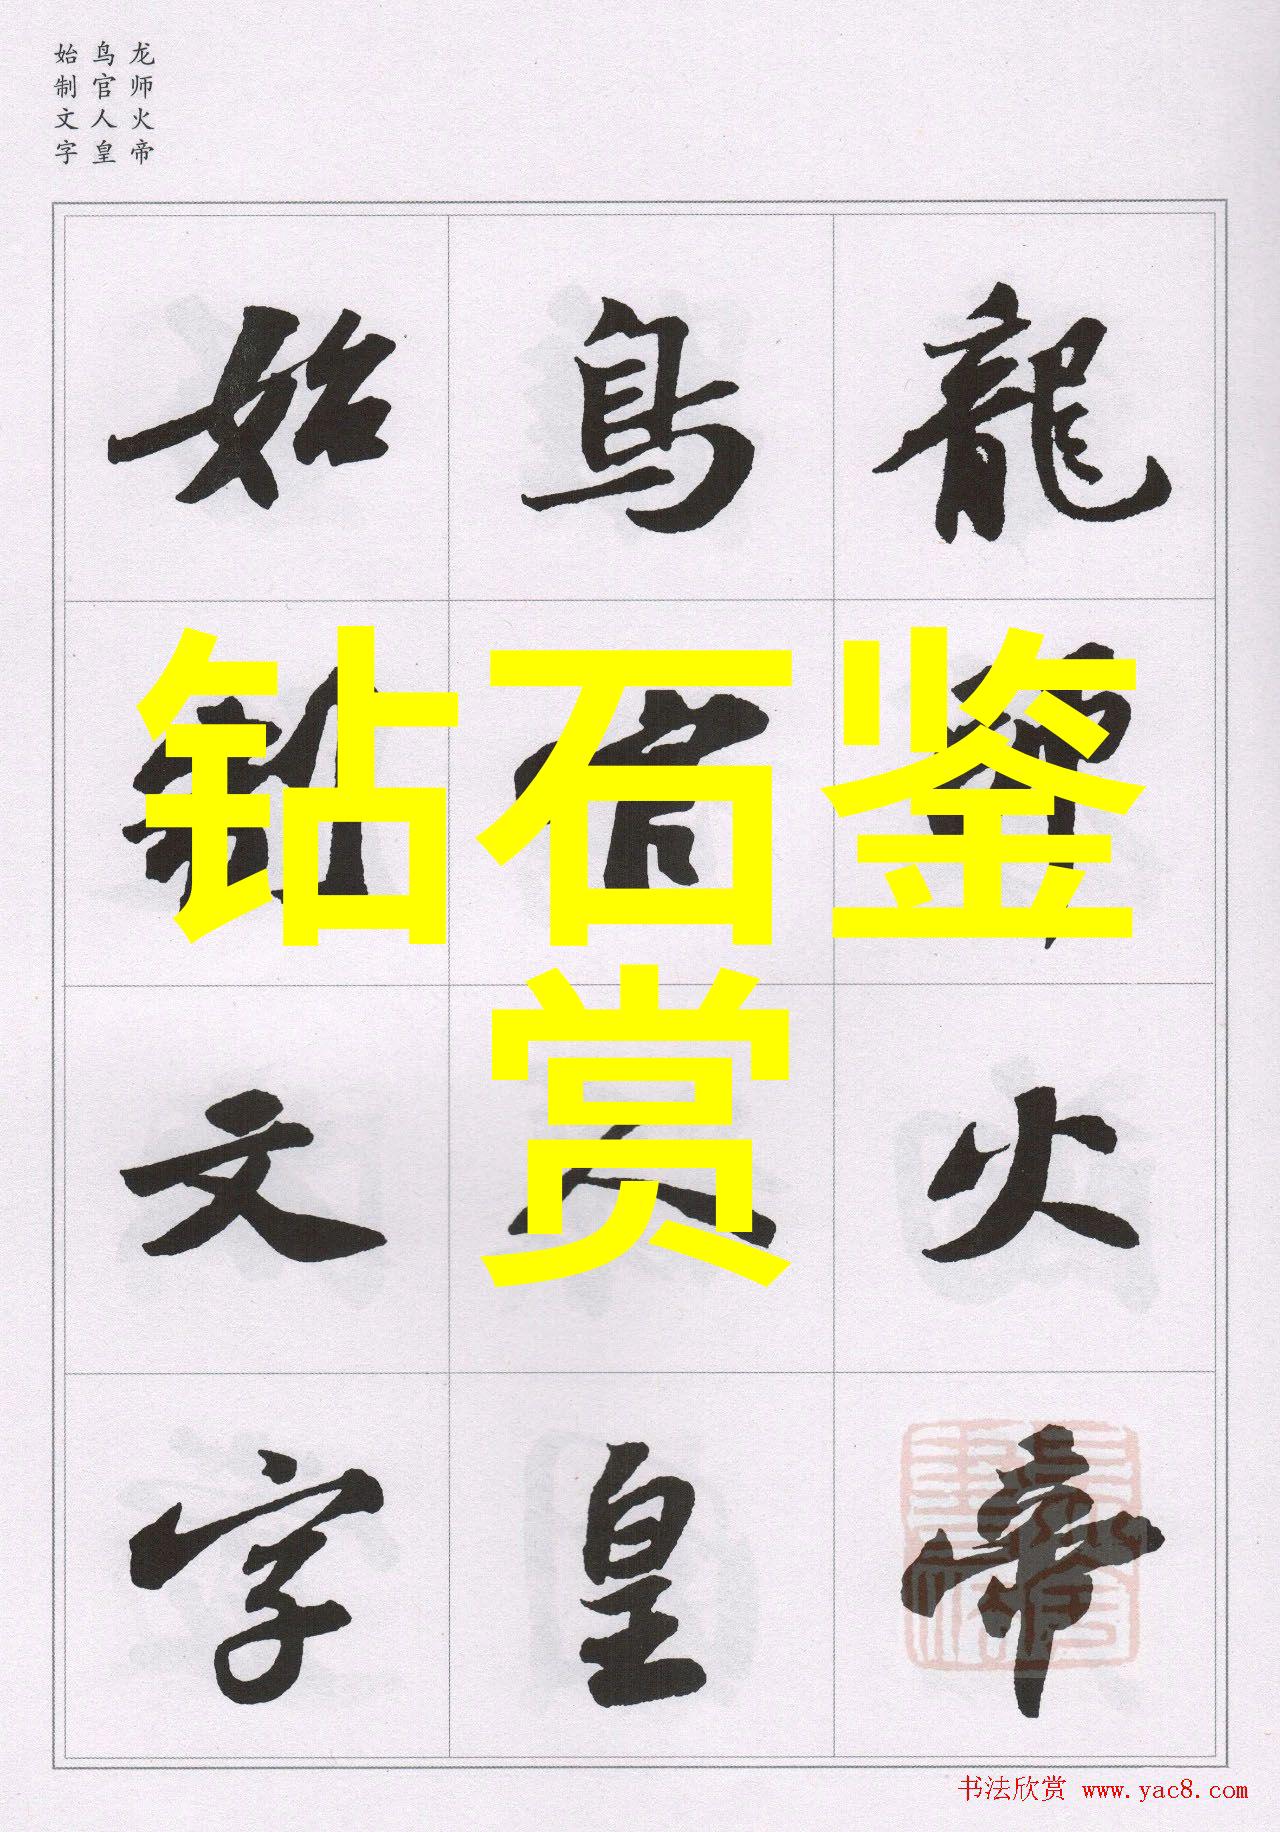 龙师火帝
鸟官人皇
始制文字
龍師火帝
鳥官人皇
始制文字
钻石鉴
赏
书法欣赏 www.yac8.com